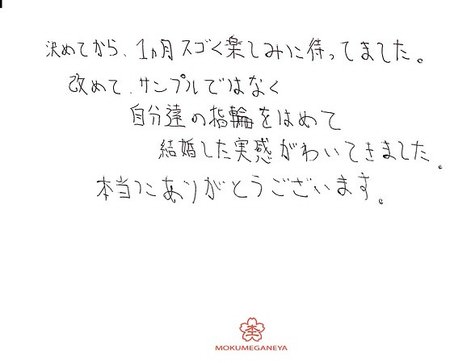 決めてから、1ヵ月スゴく楽しみに待ってました。
改めて、サンプルではなく
自分達の指輪をはめて
結婚した実感がわいてきました。
本当にありがとうございます。
杢
MOKUMEGANEYA